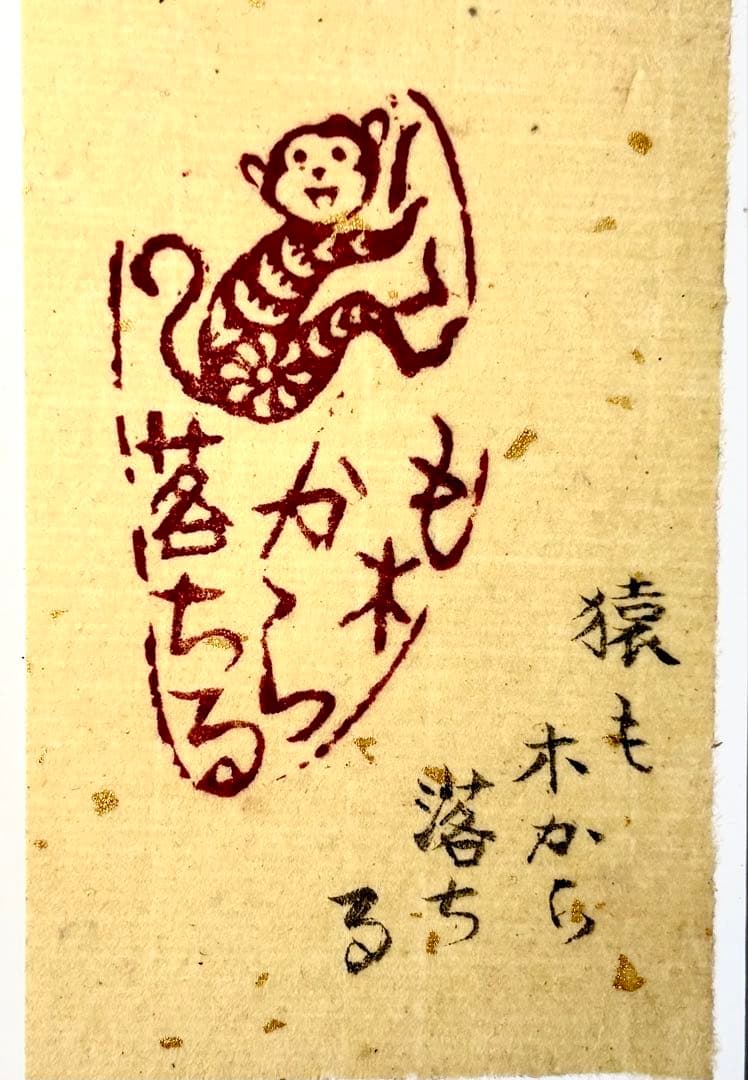 も木
から
落ちる
猿も
木から
落ち
る